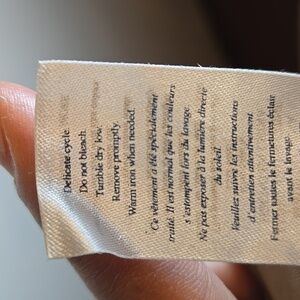 Delicate cycle
Do not bleach.
Tumble dry low.
Remove promptly.
Warm iron when needed.
Ce vêtement à été spécialement
traité. Il est normal que les couleurs
s'estompent lors du lavage.
Ne pas exposer à la lumière directe
du soleil.
Veuillez suivre les instructions
d'entretien attentivement.
Fermer toutes le fermetures éclair
avant le lavage.